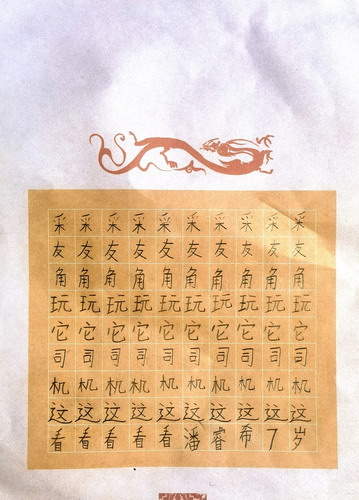 采采采采采采采采采采
友友友友友友友友友友
角角角角角角角角角角
玩玩玩玩玩玩玩玩玩玩
它它它它它它它它它它
司司司司司司司司司司
机机机机机机机机机机
这这这这这这这这这这
看看看看看潘睿希7岁